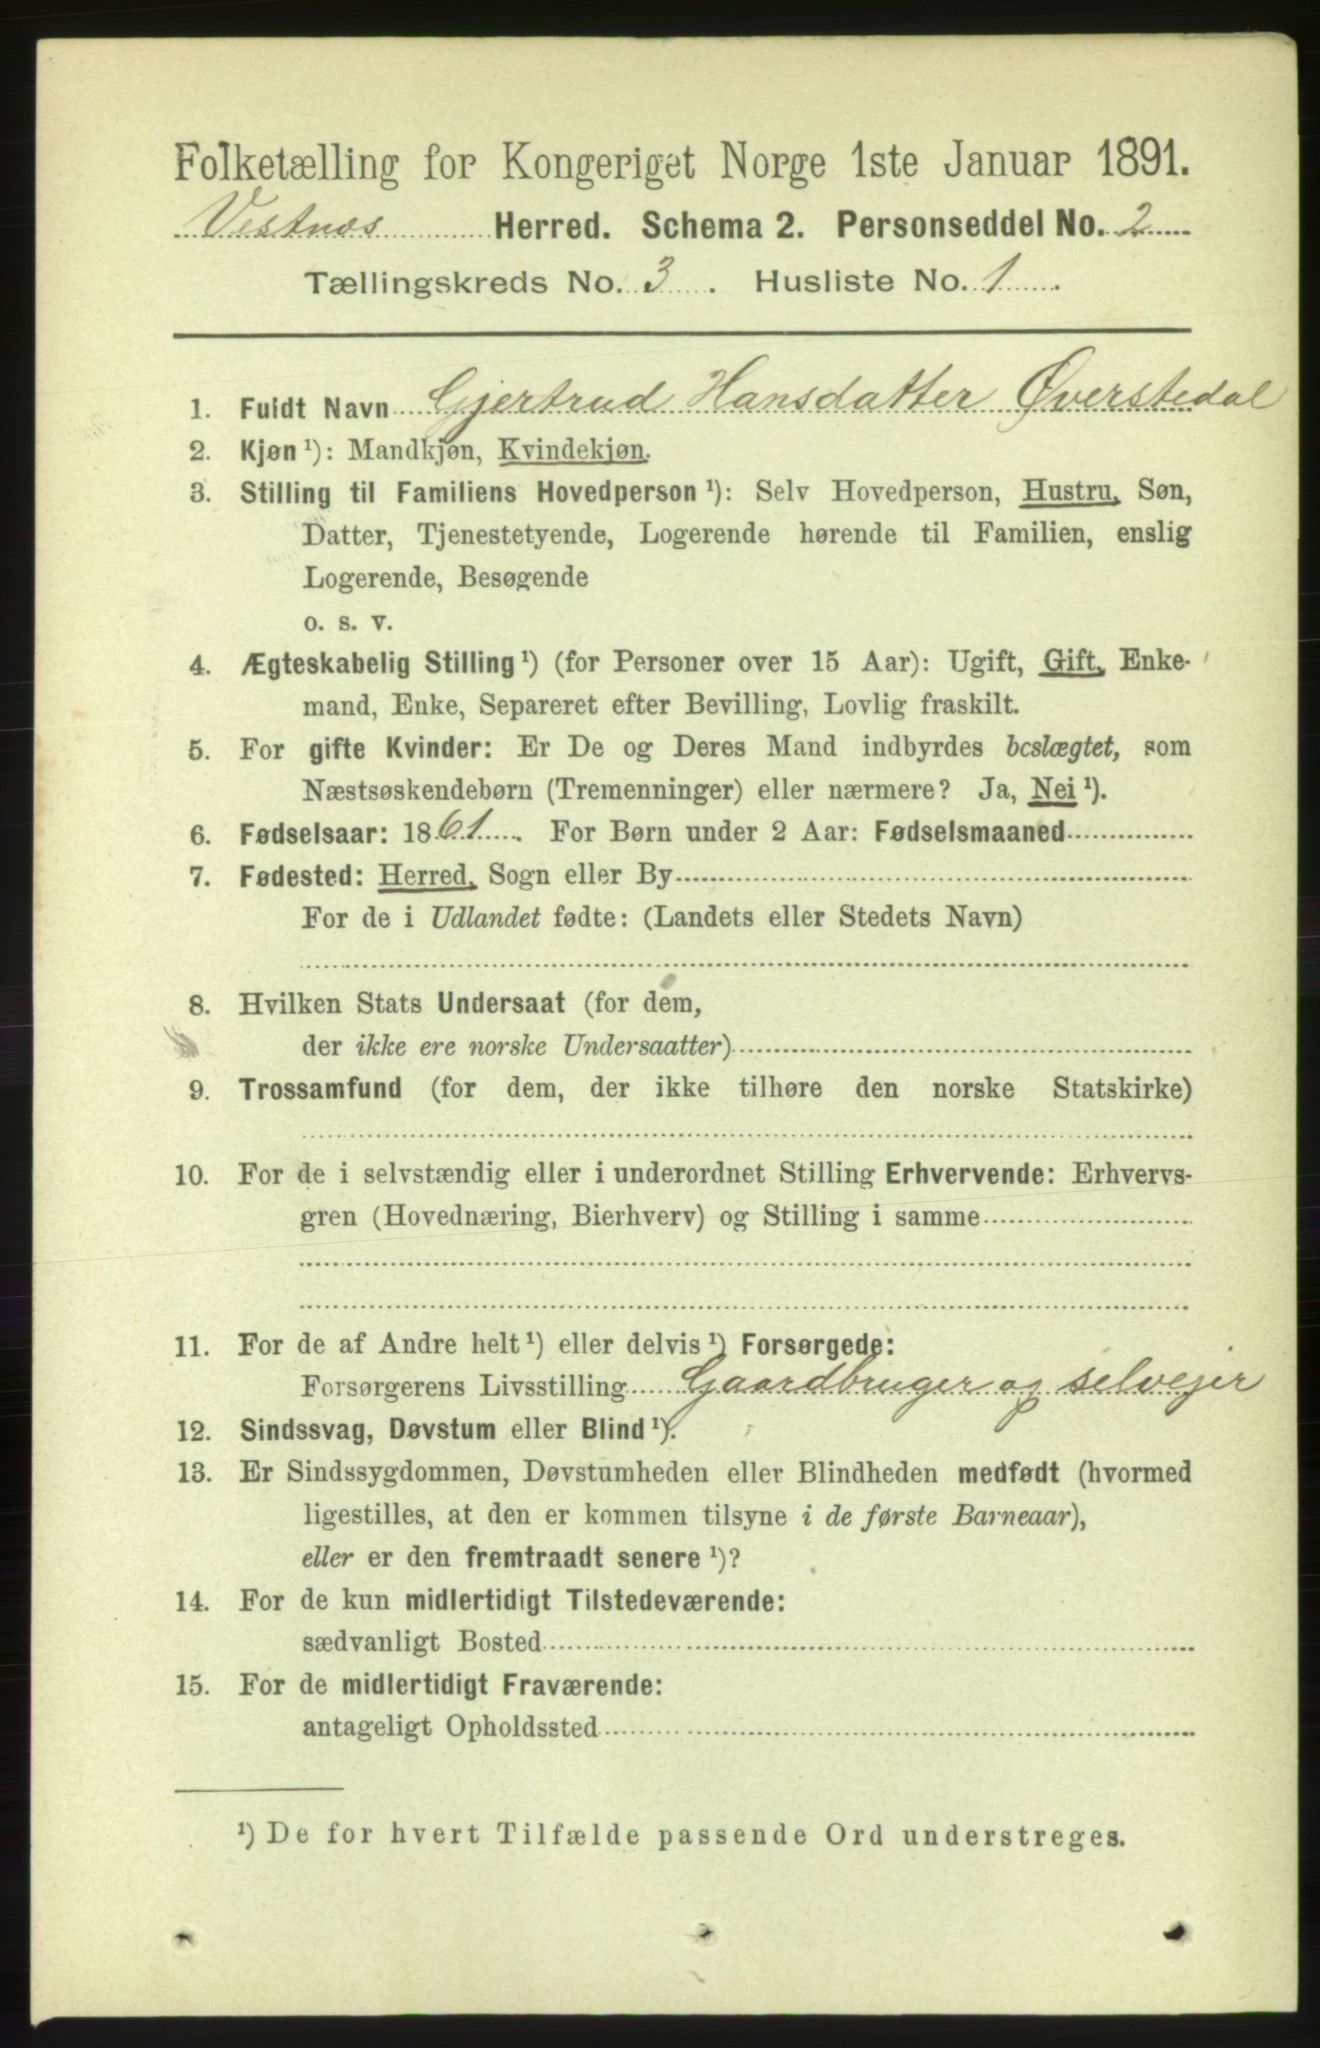 Folketælling for Kongeriget Norge 1ste Januar 1891.
Vestnæs Herred. Schema 2. Personseddel No. 2
Tællingskreds No. 3. Husliste No. 1.
1. Fuldt Navn Gjertrud Hansdatter Øverstedal
2. Kjøn ¹): Mandkjøn, Kvindekjøn.
3. Stilling til Familiens Hovedperson ¹): Selv Hovedperson, Hustru, Søn,
Datter, Tjenestetyende, Logerende hørende til Familien, enslig
Logerende, Besøgende
o. s. v.
4. Ægteskabelig Stilling ¹) (for Personer over 15 Aar): Ugift, Gift, Enke-
mand, Enke, Separeret efter Bevilling, Lovlig fraskilt.
5. For gifte Kvinder: Er De og Deres Mand indbyrdes beslægtet, som
Næstsøskendebørn (Tremenninger) eller nærmere? Ja, Nei ¹).
6. Fødselsaar: 1861. For Børn under 2 Aar: Fødselsmaaned
7. Fødested: Herred, Sogn eller By
For de i Udlandet fødte: (Landets eller Stedets Navn)
8. Hvilken Stats Undersaat (for dem,
der ikke ere norske Undersaatter)
9. Trossamfund (for dem, der ikke tilhøre den norske Statskirke)
10. For de i selvstændig eller i underordnet Stilling Erhvervende: Erhvervs-
gren (Hovednæring, Bierhverv) og Stilling i samme
11. For de af Andre helt ¹) eller delvis ¹) Forsørgede:
Forsørgerens Livsstilling Gaardbruger og selvejer
12. Sindssvag, Døvstum eller Blind ¹).
13. Er Sindssygdommen, Døvstumheden eller Blindheden medfødt (hvormed
ligestilles, at den er kommen tilsyne i de første Barneaar),
eller er den fremtraadt senere ¹)?
14. For de kun midlertidigt Tilstedeværende:
sædvanligt Bosted
15. For de midlertidigt Fraværende:
antageligt Opholdssted
¹) De for hvert Tilfælde passende Ord understreges.